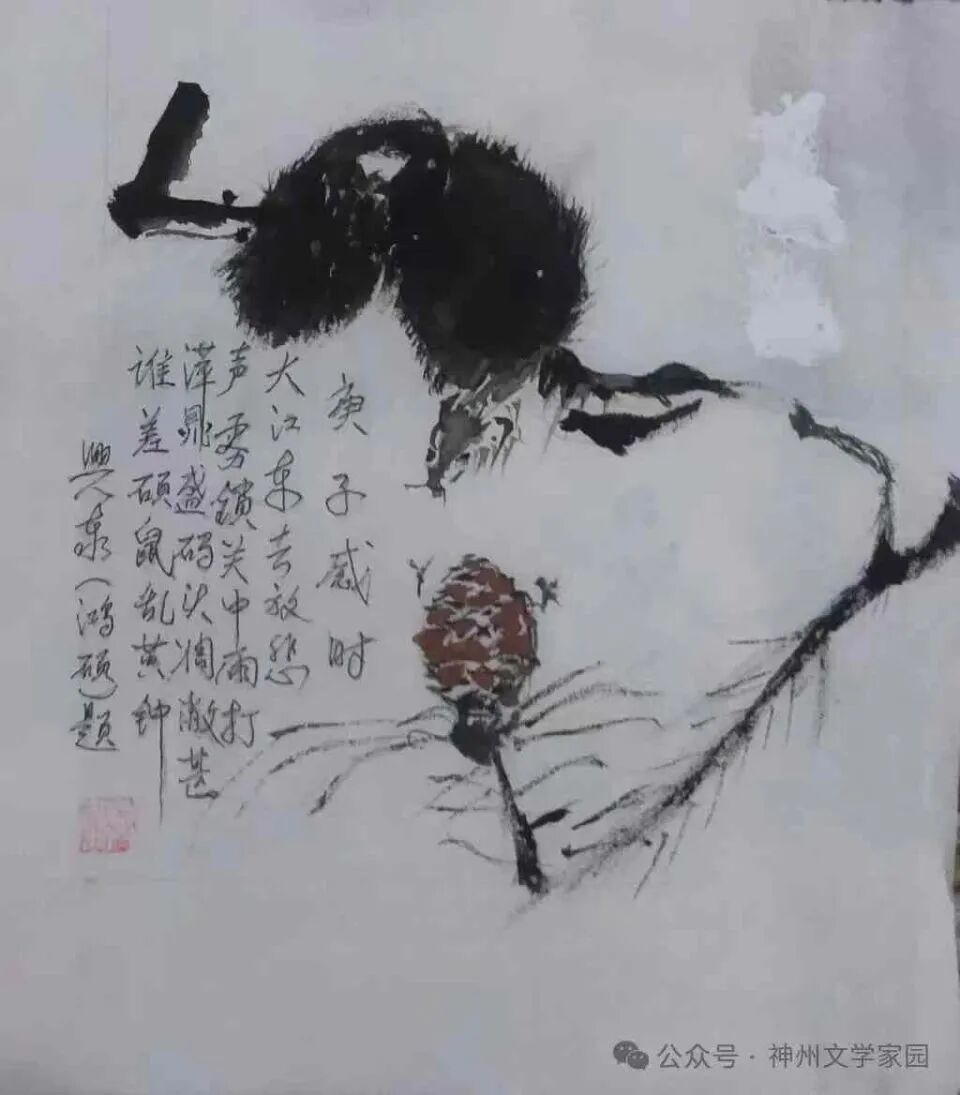 庚子感时
大江东去放悲
声雾鎖关中雨打
萍鼎盛码头凋敝甚
谁差硕鼠乱黄钟
興泉(鸿硕)题
公众号·神州文学家园